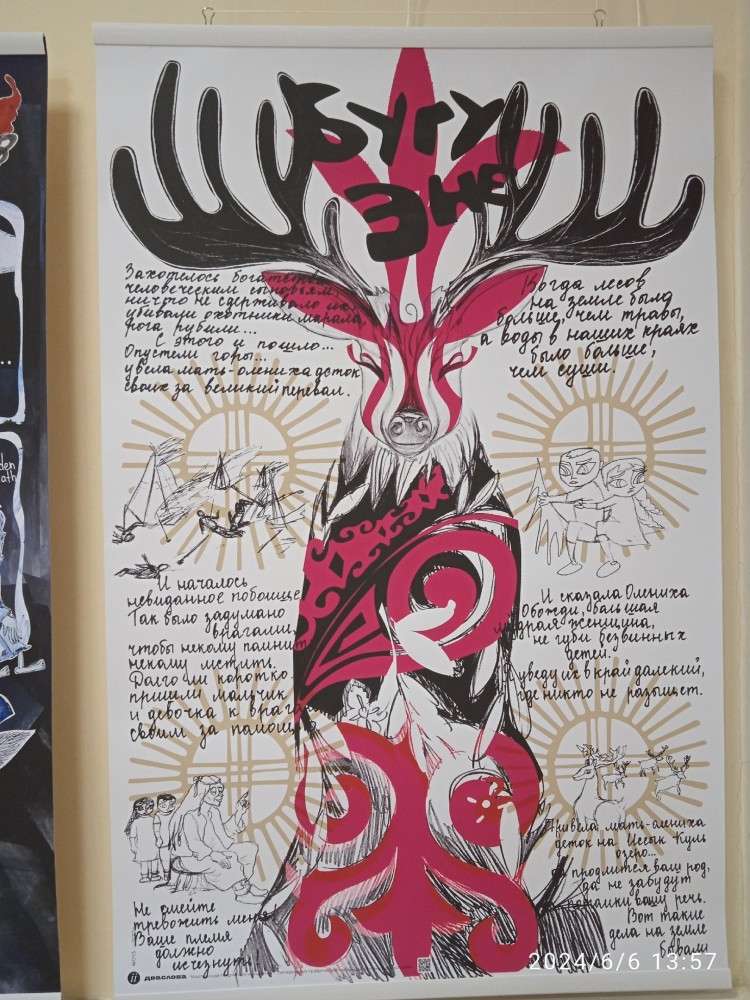 Бугу
Эне
Захотелось богатства
человеческим сыновьям,
ничто не сдерживало их,
убивали охотники марала,
рога рубили...
С этого и пошло...
Опустели горы...
увела мать-олениха деток
своих за великий перевал.
Когда лесов
на земле было
больше, чем травы,
а воды в наших краях
было больше,
чем суши.
И началось
невиданное побоище.
Так было задумано
врагами,
чтобы некому помнить
некому мстить.
Долго ли коротко
пришли мальчик
и девочка к враг
своим за помощ
И сказала Олениха
Обожди, большая
мудрая женщина,
не губи безвинных
детей.
уведу их в край далекий,
где никто не разыщет.
Не смейте
тревожить меня!
Ваше племя
должно
исчезнуть!
Привела мать-олениха
деток на Иссык Куль
озеро...
да продлится ваш род,
да не забудут
потомки вашу речь.
Вот такие
дела на земле
бывали
двaслова
den
ath
2024/6/6 13:57